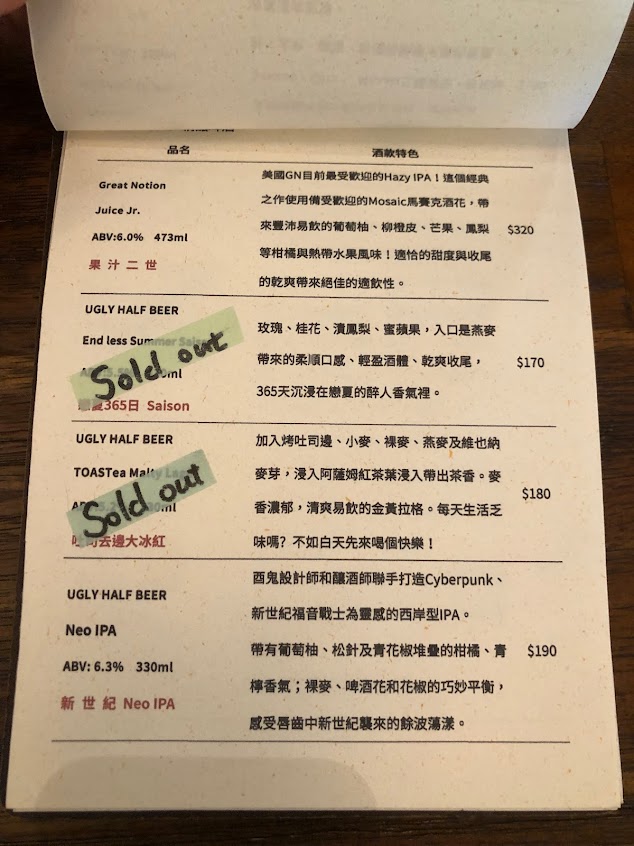 品名 酒款特色
Great Notion
Juice Jr.
ABV:6.0% 473ml
果汁二世
美國GN目前最受歡迎的Hazy IPA！這個經典
之作使用備受歡迎的Mosaic馬賽克酒花，帶
來豐沛易飲的葡萄柚、柳橙皮、芒果、鳳梨
等柑橘與熱帶水果風味！適恰的甜度與收尾
的乾爽帶來絕佳的適飲性。
$320
UGLY HALF BEER
End less Summer Saison
Sold out
ml
365日 Saison
玫瑰、桂花、漬鳳梨、蜜蘋果，入口是燕麥
帶來的柔順口感、輕盈酒體、乾爽收尾，
365天沉浸在戀夏的醉人香氣裡。
$170
UGLY HALF BEER
TOASTea Malty Lager
Sold out
ml
去邊大冰紅
加入烤吐司邊、小麥、裸麥、燕麥及維也納
麥芽，浸入阿薩姆紅茶葉浸入帶出茶香。麥
香濃郁，清爽易飲的金黃拉格。每天生活乏
味嗎？不如白天先來喝個快樂！
$180
UGLY HALF BEER
Neo IPA
ABV: 6.3% 330ml
新世紀 Neo IPA
酉鬼設計師和釀酒師聯手打造Cyberpunk、
新世紀福音戰士為靈感的西岸型IPA。
帶有葡萄柚、松針及青花椒堆疊的柑橘、青
檸香氣；裸麥、啤酒花和花椒的巧妙平衡，
感受唇齒中新世紀襲來的餘波蕩漾。
$190